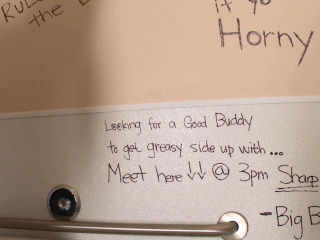 RUL
the
it yo
Horny
Looking for a Good Buddy
to get greasy side up with...
Meet here ↓↓ @ 3pm Sharp
-Big B